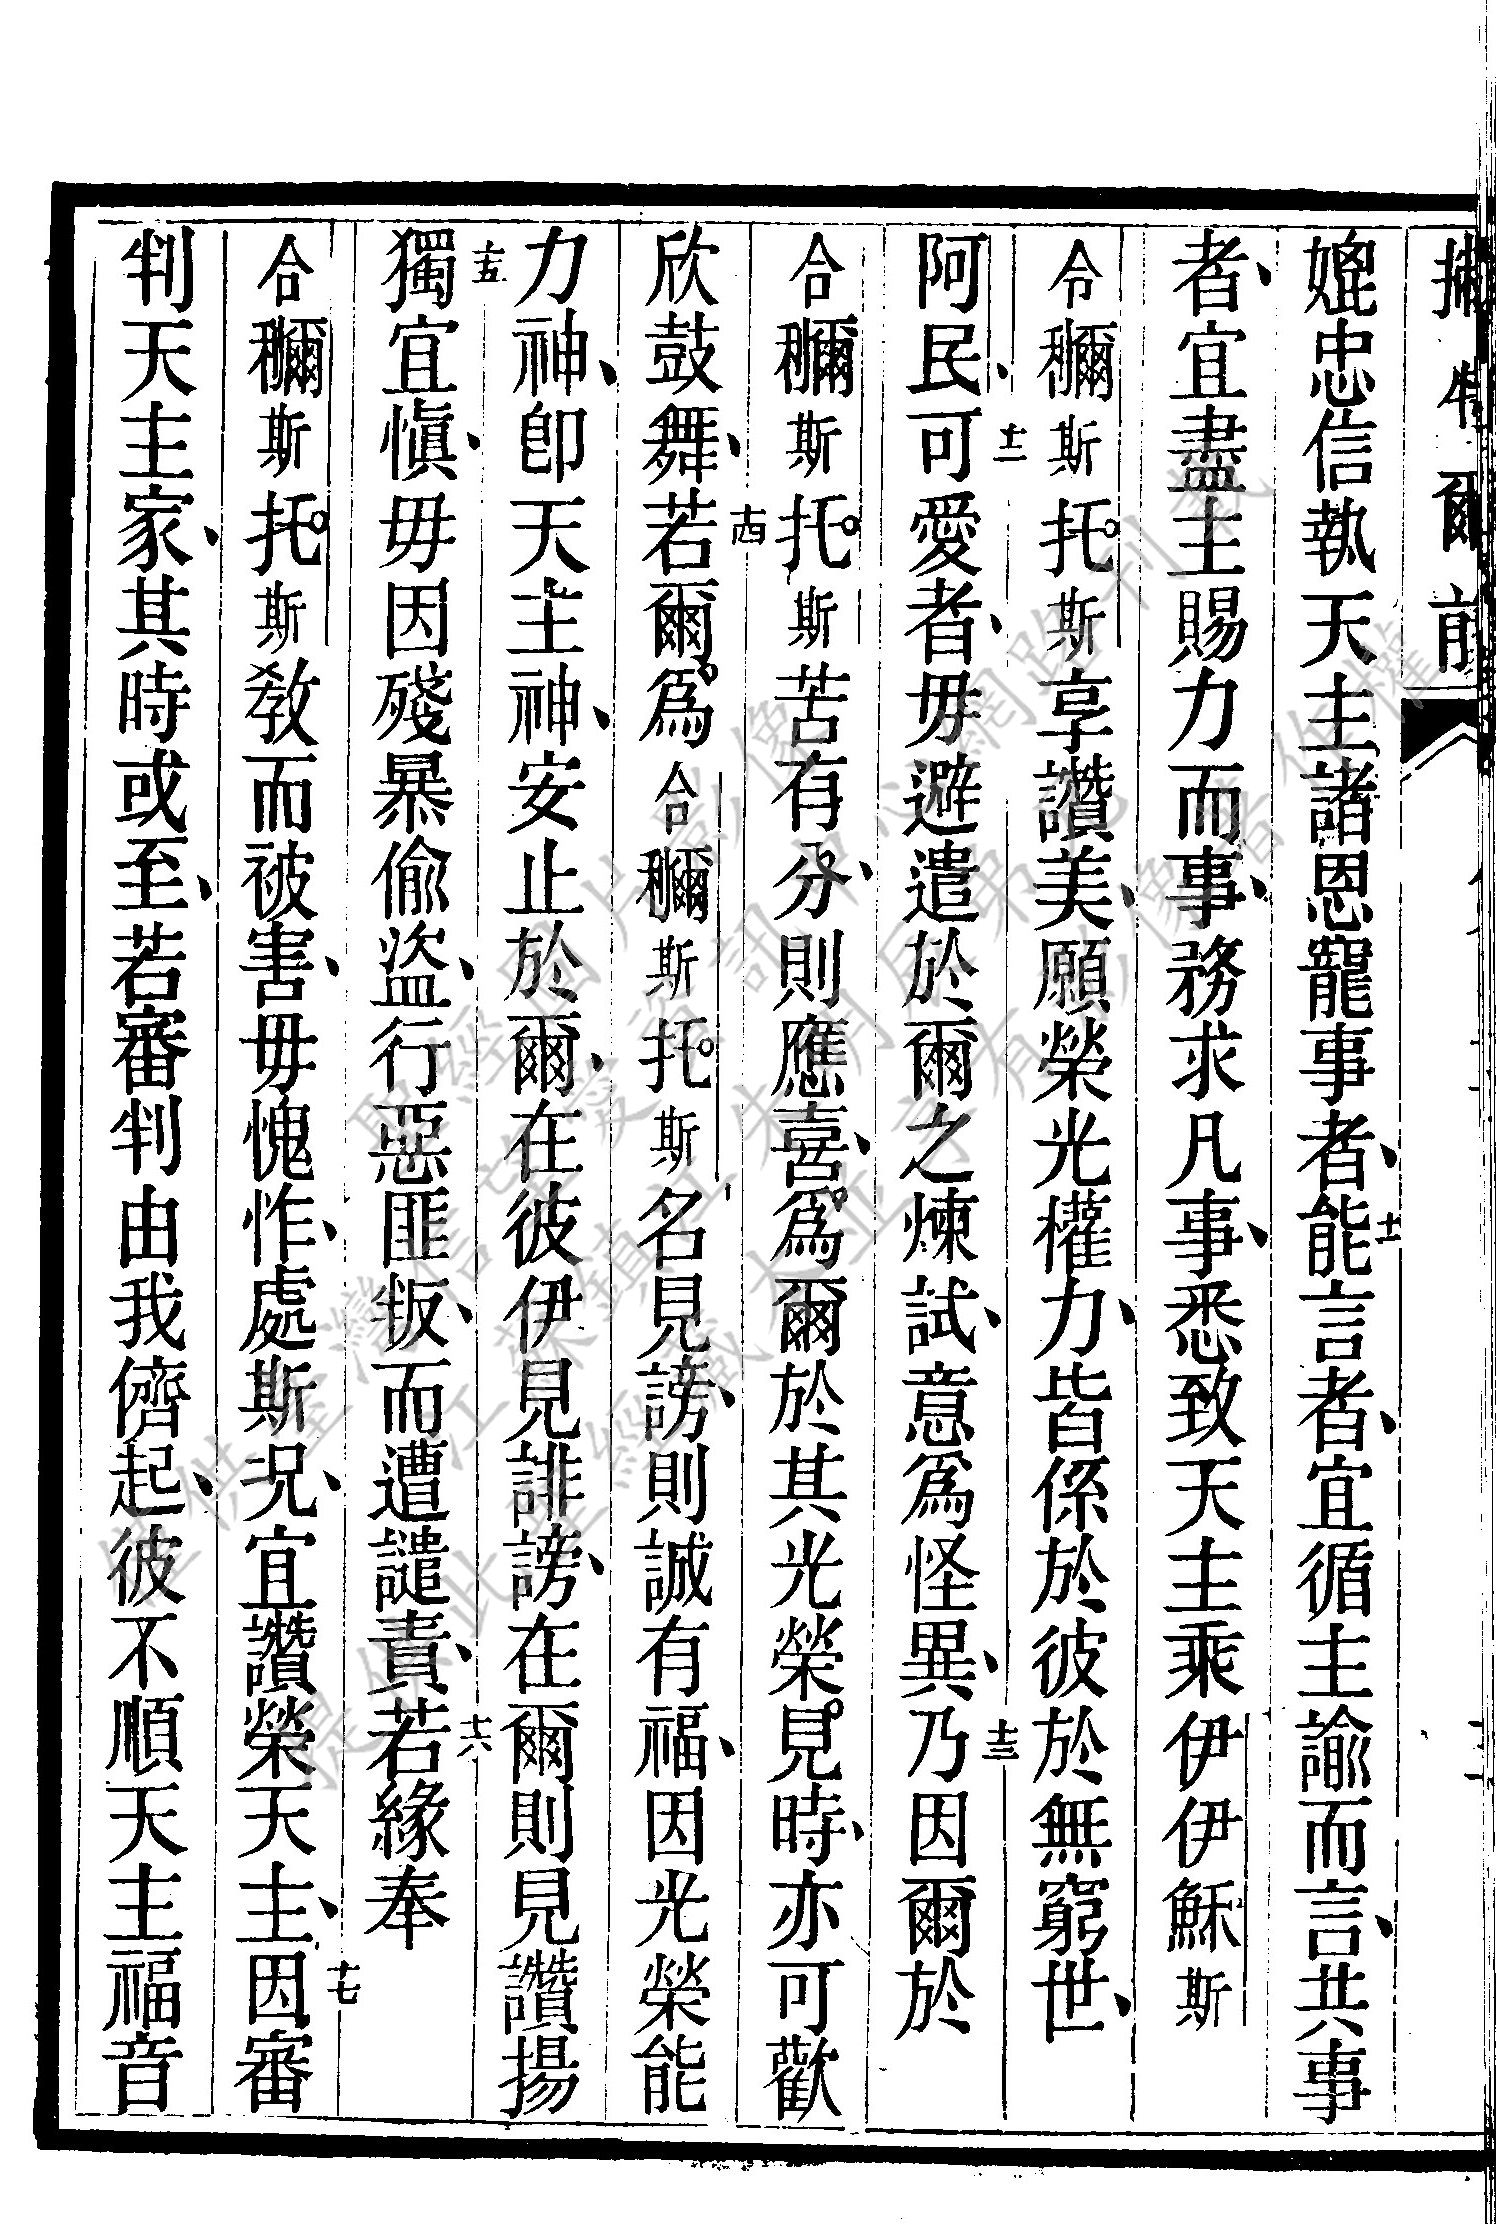 媲忠信執天主諸恩寵事者、十一能言者、宜循主諭而言、共事
者、宜盡主賜力而事、務求凡事、悉致天主乘伊伊穌斯
合㣆斯托斯享讚美、願榮光權力、皆係於彼於無窮世、
阿民、十二可愛者、毋避遣於爾之煉試、意爲怪異、十三乃因爾於
合㣆斯托斯苦有分、則應喜、爲爾於其光榮見時、亦可歡
欣鼓舞、十四若爾爲合㣆斯托斯名見謗、則誠有福、因光榮能
力神、卽天主神、安止於爾、在彼伊見誹謗、在爾則見讚揚
十五獨宜愼、毋因殘暴偷盜、行惡匪叛、而遭譴責、十六若緣奉
合㣆斯托斯教而被害、毋愧怍、處斯况、宜讚榮天主、十七因審
判天主家、其時或至、若審判由我儕起、彼不順天主福音